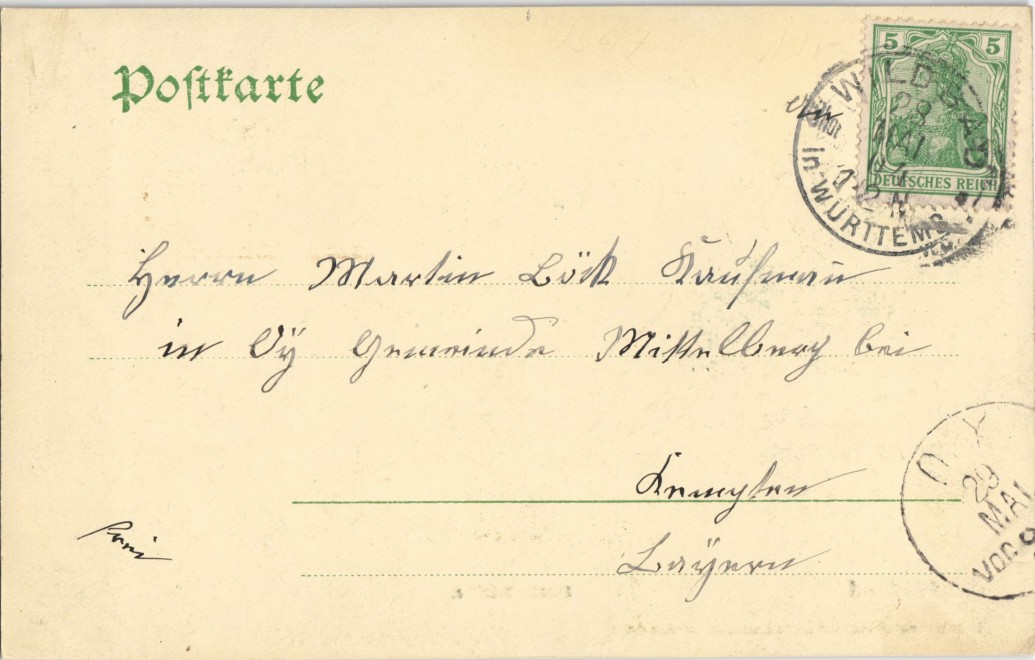 Postkarte
5 5
DEUTSCHES REICH
WILDBAD
28
MAI
in WÜRTTEMB.
An
Herrn Martin Böck Kaufman
in Oÿ Gemeinde Mittelberg bei
Kempten
Baÿern
OY
29
MAI